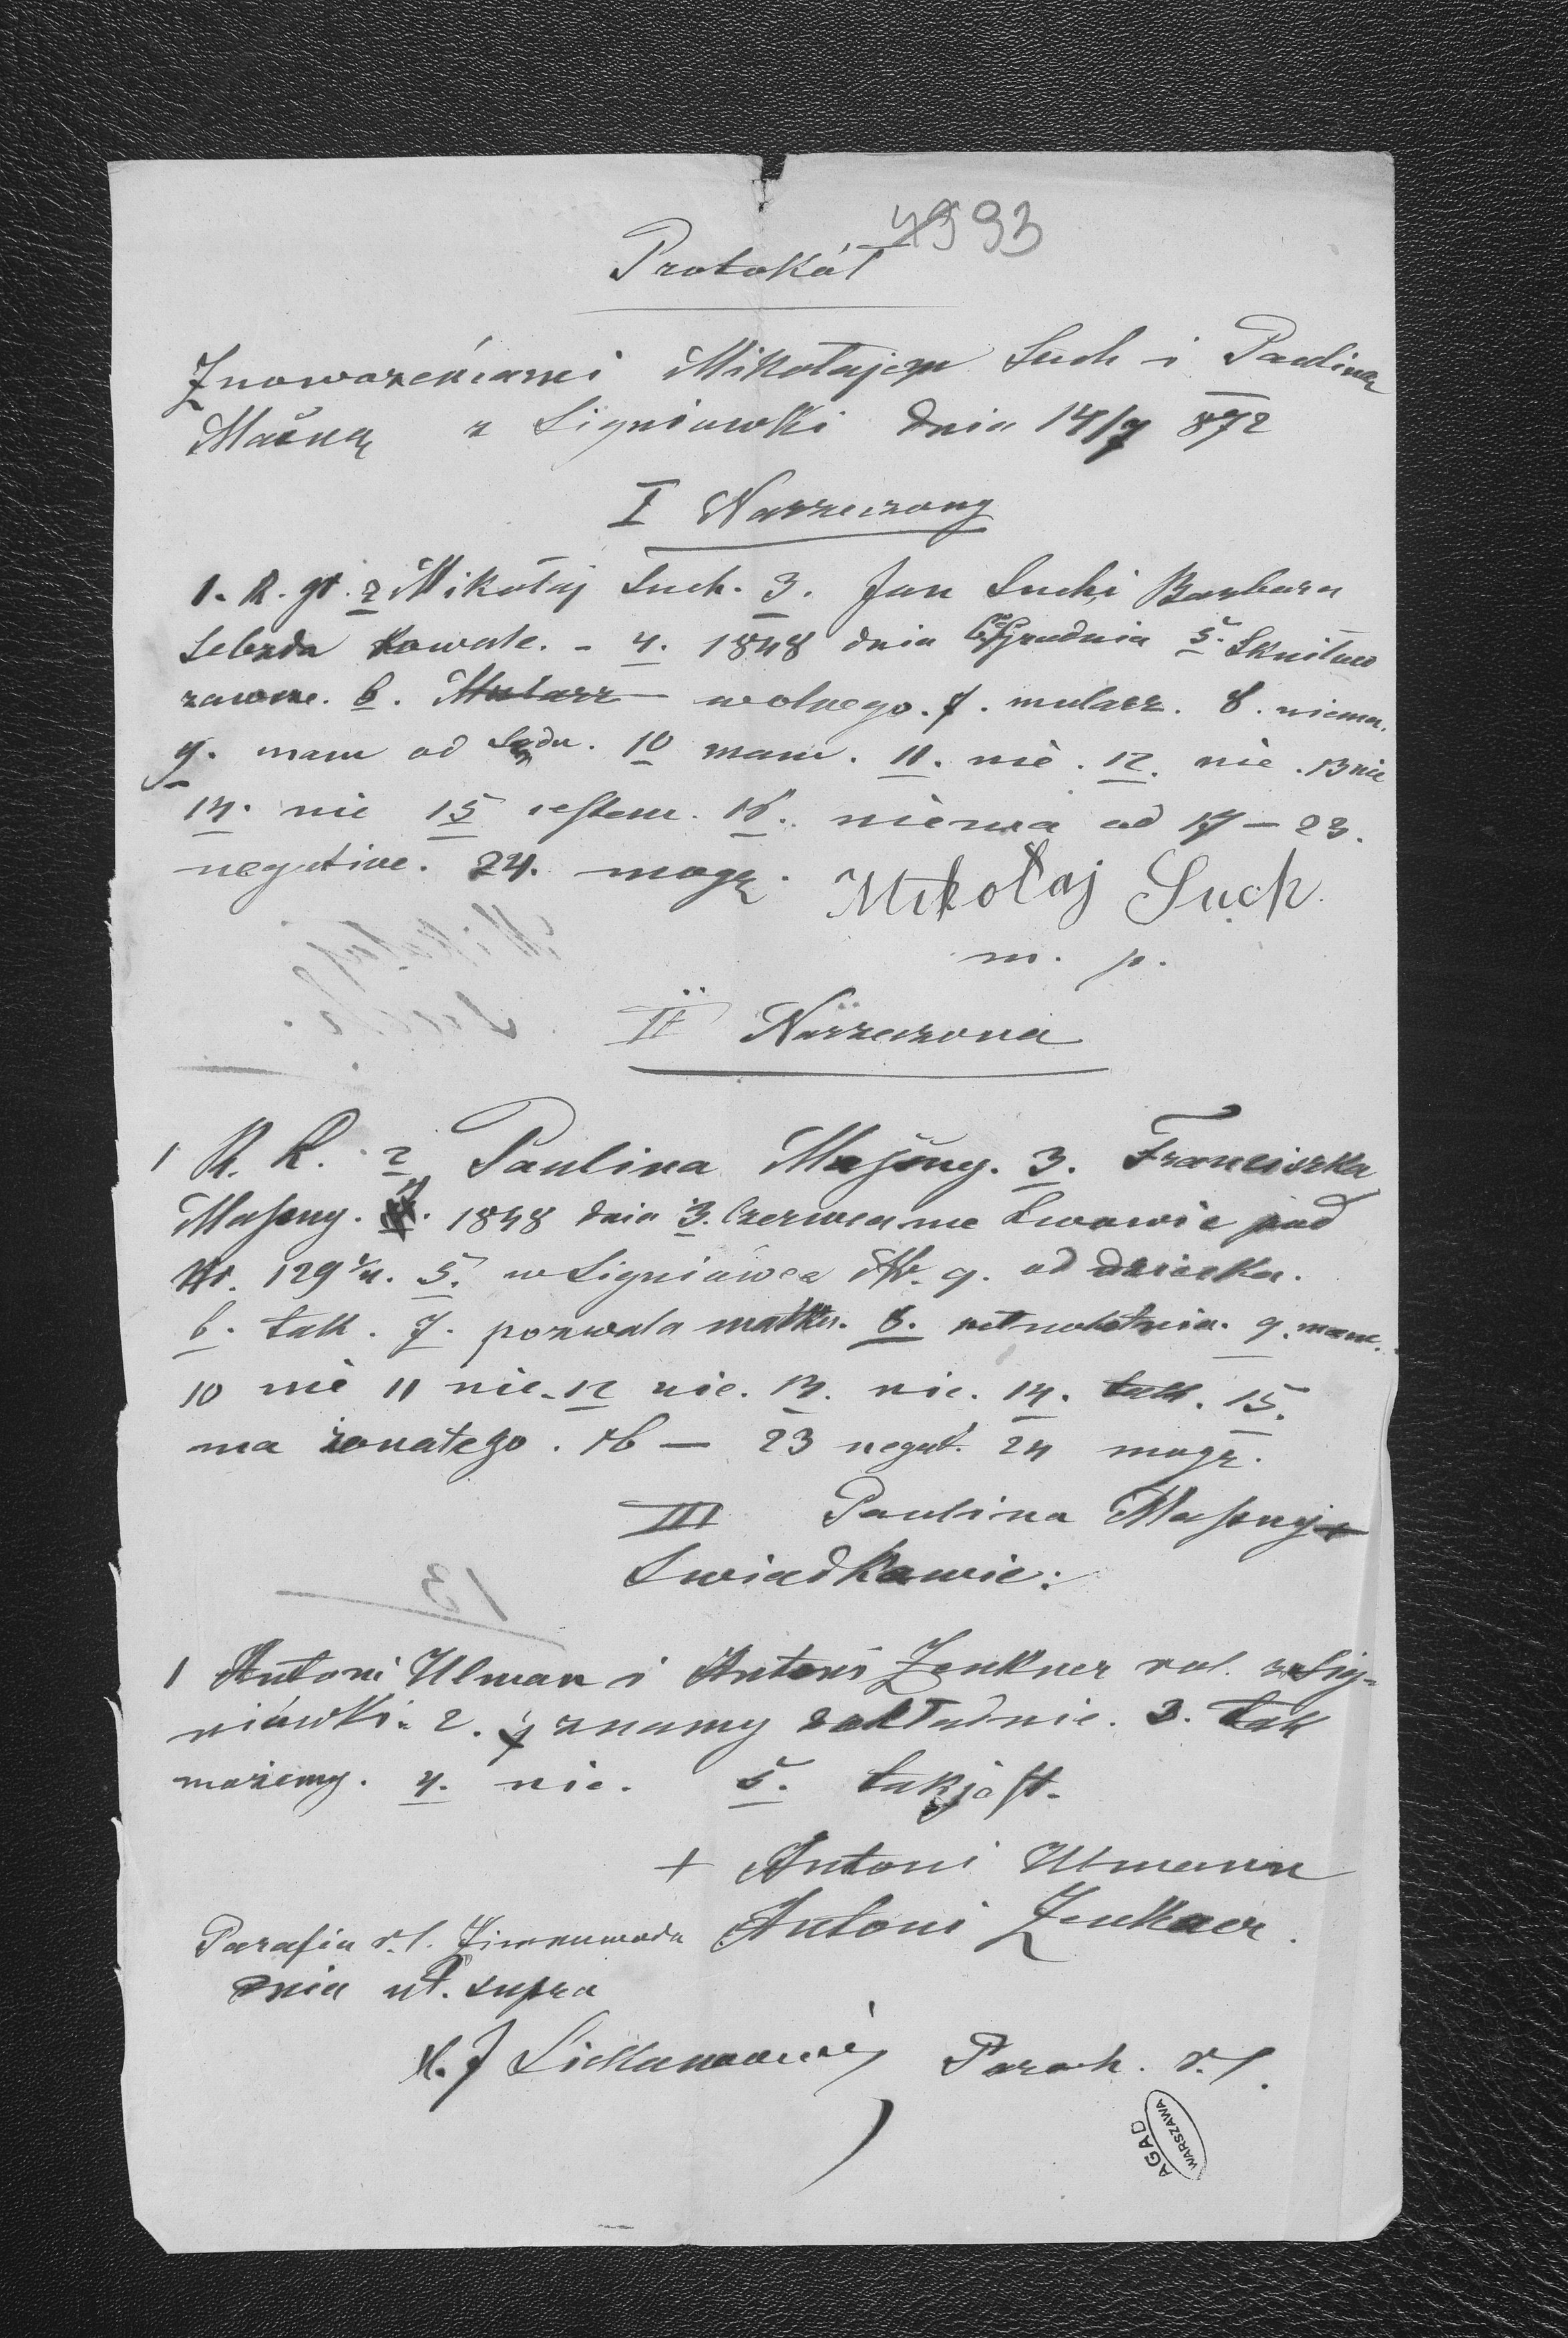 4993
Protokół
Z nowożeńcami Mikołajem Such i Pauliną
Maśną z Signiowki dnia 14/7 872
I Narzeczony
1. R. gr. 2 Mikołaj Such. 3. Jan Such i Barbara
Kowale. - 4. 1848 dnia 6 Grudnia 5. Skniłow
zawsze. 6. Mularz wolnego. 7. mularz. 8. niema.
9. mam od Sądu. 10 mam. 11. nie. 12. nie. 13 nie
14. nie 15 jestem. 16. niema od 17 — 23.
negative. 24. mogę. Mikołaj Such.
m. p.
II Narzeczona
1 R. L. 2 Paulina Massny. 3. Franciszka
Massny. 4. 1848 dnia 3. Czerwca we Lwowie pod
Nr. 129 2/4. 5. w Signiówce od dziecka.
6. tak. 7. pozwala matka. 8. 9. mam.
10 nie 11 nie. 12 nie. 13. nie. 14. tak. 15.
ma żonatego. 16 — 23 negat. 24 mogę.
III Paulina Massny +
Swiadkowie:
1 Antoni Ulman i Antoni Zenkner rol. z Sig-
niówki. 2. znamy dokładnie. 3. tak
możemy. 4. nie. 5. tak jest.
+ Antoni Ulmann
Antoni Zenkner.
Parafia r. l. Zimnawoda
dnia ut. supra
X. J Paroch. r. l.
AGAD
WARSZAWA